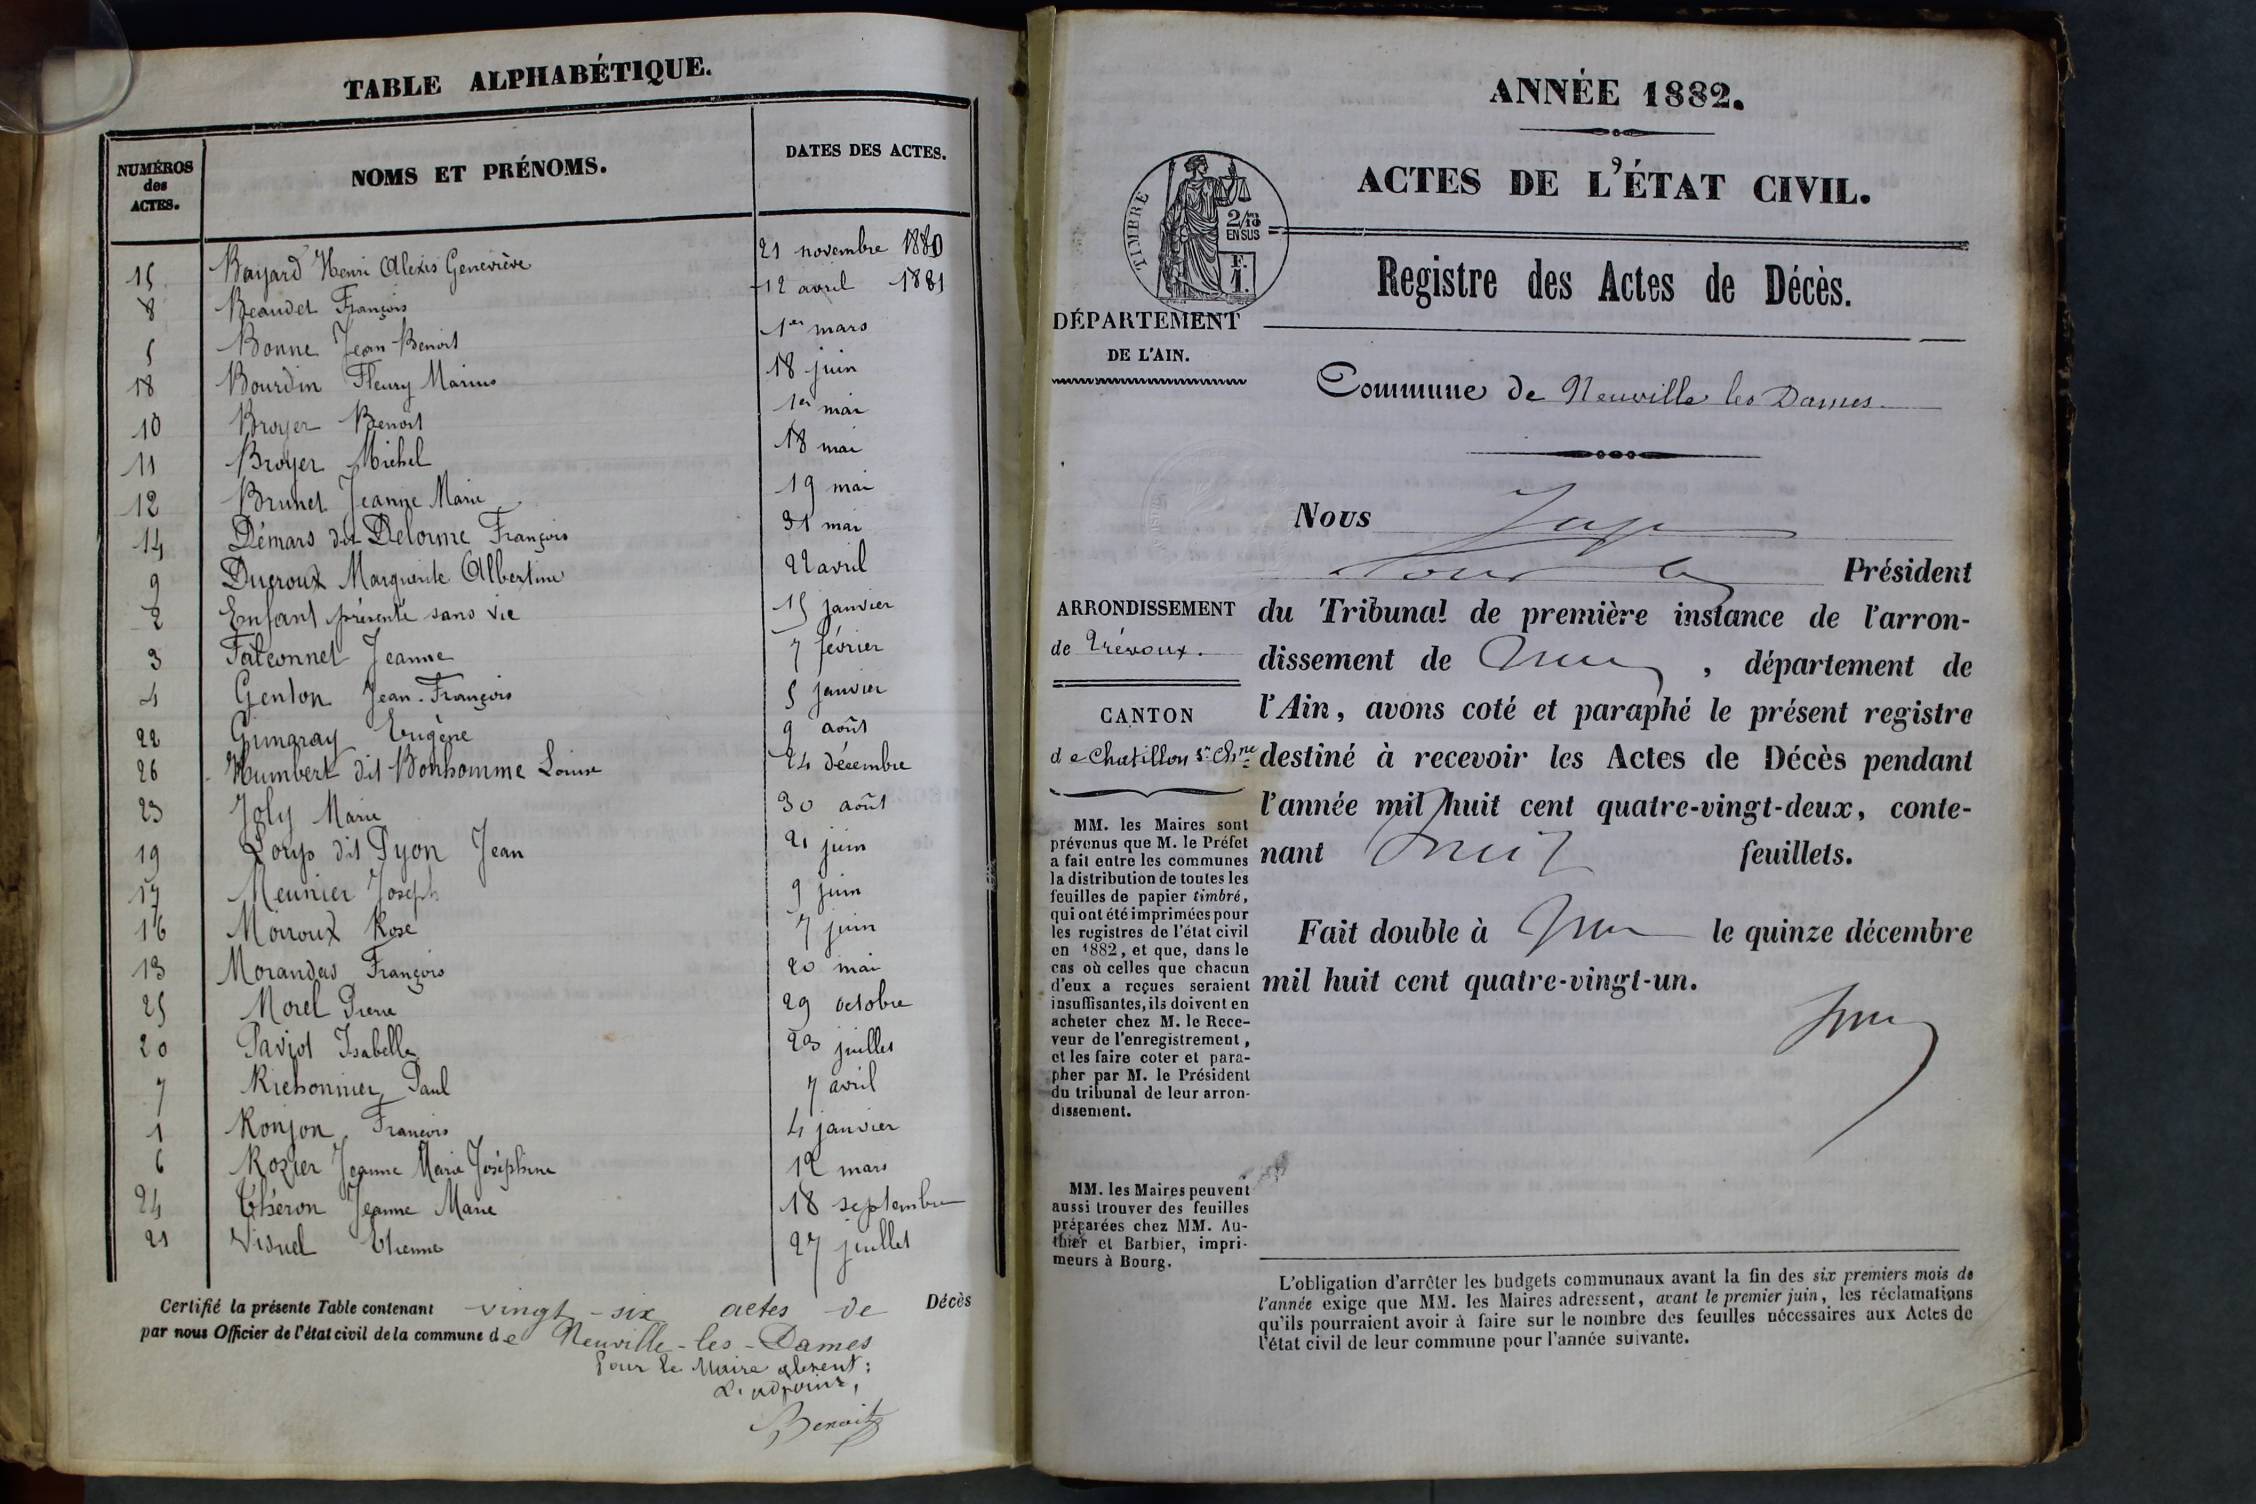 TABLE ALPHABÉTIQUE.
NUMÉROS des ACTES. NOMS ET PRÉNOMS. DATES DES ACTES.
15 Bayard Henri Alexis Geneviève 21 novembre 1880
8 Beaudet François 12 avril 1881
5 Bonne Jean Benoit 1er mars
18 Bourdin Fleury Marius 18 juin
10 Broyer Benoit 1er mai
11 Broyer Michel 18 mai
12 Brunet Jeanne Marie 19 mai
14 Démars dit Delorme François 31 mai
9 Ducroux Marguerite Albertine 22 avril
2 Enfant présenté sans vie 15 janvier
3 Falconnet Jeanne 7 février
4 Genton Jean-François 5 janvier
22 Eugène 9 août
26 Humbert dit Bonhomme Louise 24 décembre
23 Joly Marie 30 août
19 Loup dit Pyon Jean 21 juin
17 Meunier Joseph 9 juin
16 Moiroux Rose 7 juin
13 Morandas François 20 mai
25 Morel Pierre 29 octobre
20 Paviot Isabelle 23 juillet
7 Richonnier Paul 7 avril
1 Ronjon François 4 janvier
6 Rozier Jeanne Marie Joséphine 12 mars
24 Théron Jeanne Marie 18 septembre
21 Etienne 27 juillet
Certifié la présente Table contenant vingt-six actes de Décès
par nous Officier de l'état civil de la commune de Neuville-les-Dames
Pour le Maire absent:
L'adjoint,
Benoit
ANNÉE 1882.
ACTES DE L'ÉTAT CIVIL.
TIMBRE
2/10
EN SUS
F.
1.
Registre des Actes de Décès.
DÉPARTEMENT
DE L'AIN.
Commune de Neuville les Dames
Nous
Président
ARRONDISSEMENT
de Trévoux.
CANTON
de Chatillon s. Chne
du Tribunal de première instance de l'arron-
dissement de , département de
l'Ain, avons coté et paraphé le présent registre
destiné à recevoir les Actes de Décès pendant
l'année mil huit cent quatre-vingt-deux, conte-
nant feuillets.
Fait double à le quinze décembre
mil huit cent quatre-vingt-un.
MM. les Maires sont
prévenus que M. le Préfet
a fait entre les communes
la distribution de toutes les
feuilles de papier timbré,
qui ont été imprimées pour
les registres de l'état civil
en 1882, et que, dans le
cas où celles que chacun
d'eux a reçues seraient
insuffisantes, ils doivent en
acheter chez M. le Rece-
veur de l'enregistrement,
et les faire coter et para-
pher par M. le Président
du tribunal de leur arron-
dissement.
MM. les Maires peuvent
aussi trouver des feuilles
préparées chez MM. Au-
thier et Barbier, impri-
meurs à Bourg.
L'obligation d'arrêter les budgets communaux avant la fin des six premiers mois de
l'année exige que MM. les Maires adressent, avant le premier juin, les réclamations
qu'ils pourraient avoir à faire sur le nombre des feuilles nécessaires aux Actes de
l'état civil de leur commune pour l'année suivante.